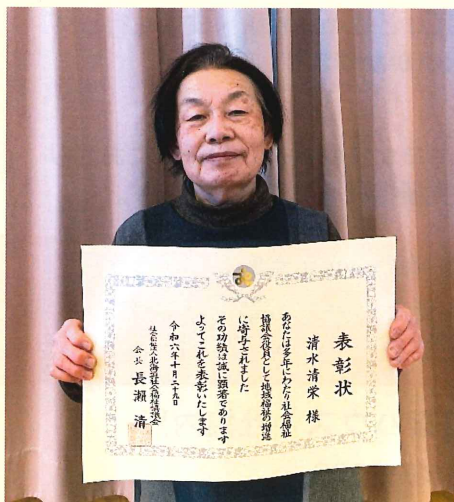 表彰状
清水清栄 様
あなたは多年にわたり社会福祉
協議会役員として地域福祉の増進
に寄与されました
その功績は誠に顕著であります
よってこれを表彰いたします
令和六年十月二十九日
社会福祉法人北海道社会福祉協議会
会長 長瀬 清